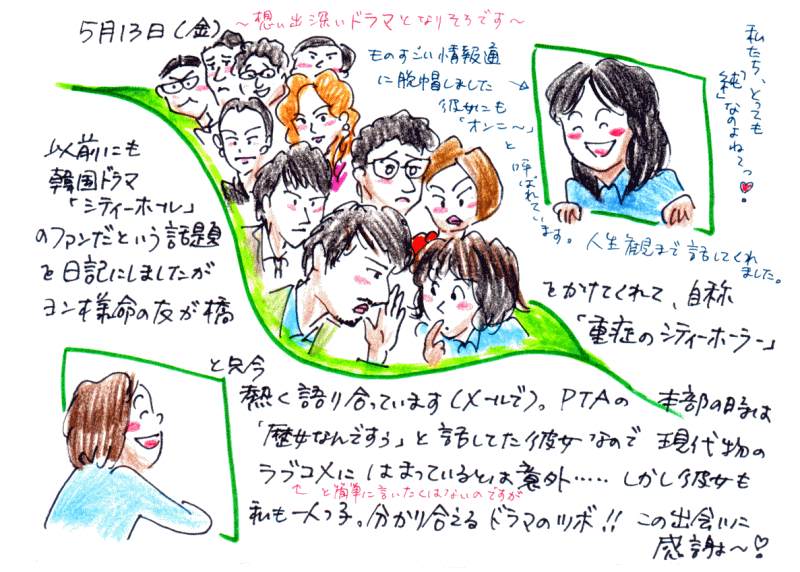 5月13日(金)
～想い出深いドラマとなりそうです～
ものすごい情報通
に脱帽しました
彼女にも
「オンニ～」
と
呼ばれています。
人生観まで話してくれ
ました。
私たち、とっても
「純」なのよねぇっ
以前にも
韓国ドラマ
「シティーホール」
のファンだという話題
を日記にしましたが
ヨン様革命の友が橋
をかけてくれて、自称
「重症のシティーホーラー」
と只今
熱く語り合っています(メールで)。PTAの本部の時は
「歴女なんですぅ」と話してた彼女なので現代物の
ラブコメにはまっているとは意外……しかし彼女も
↑と簡単に言いたくはないのですが
私も一人っ子。分かり合えるドラマのツボ!!この出会いに
感謝よ～